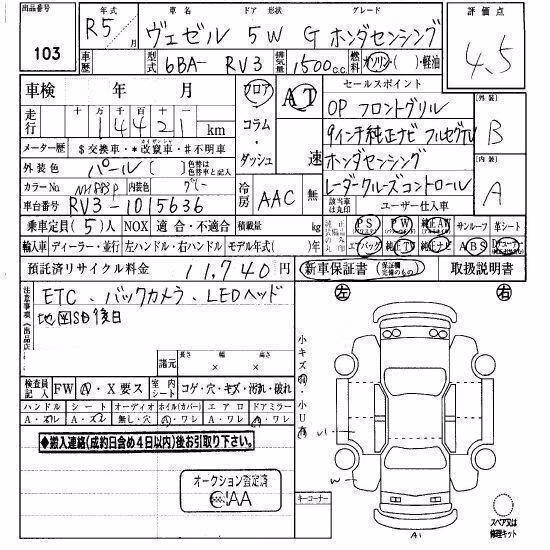 出品番号
103
年式 R5年 月
車名 ヴェゼル
ドア 形状 5W
グレード G ホンダセンシング
評価点
4.5
車歴
型式 6BA-RV3
排気量 1500c.c.
燃料 ガソリン・軽油
車検 年 月
フロア・コラム・ダッシュ
AT 速
走行 十万千百十 14421 km
メーター歴 $交換車・*改竄車・#不明車
外装色 パール( ) 色替は色替車と記入
カラーNo NH883P 内装色 グレー
車台番号 RV3-1015636
冷房 AAC 無
セールスポイント
OP フロントグリル
9インチ純正ナビ フルセグTV
ホンダセンシング
レーダークルーズコントロール
外装 B
内装 A
該当装備は丸印
ユーザー仕入車
乗車定員(5)人 NOX 適合・不適合 積載量 kg
PS PW 純正AW サンルーフ 革シート
輸入車 ディーラー・並行 左ハンドル・右ハンドル モデル年式( )年
エアバック 純正TV 純正ナビ ABS
預託済リサイクル料金 11,740円
新車保証書(保証欄完備のもの) 取扱説明書
注意事項(出品店)
ETC、バックカメラ、LEDヘッド
地図SD後日
左 右
諸元 長さ × 幅 × 高さ
小キズ 小U
検査員記入 FW A・X要ス 室内シート コゲ・穴・キズ・汚れ・破れ
ハンドル シート オーディオ ホイル(カバー) エアロ ドアミラー
A・スレ A・スレ 無し・穴 A・ワレ A・ワレ A・ワレ
◆搬入連絡(成約日含め4日以内)後お引取り下さい。
オークション査定済
AA
キーコーナー
W
A1
スペア又は修理キット